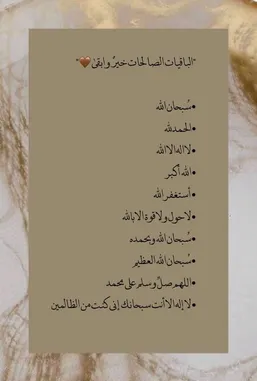 "الباقيات الصالحات خيرٌ وابقىٰ🤎"
•سُبحان الله
•الحمدلله
•لا اله الا الله
•الله أكبر
•أستغفر الله
•لاحول ولا قوة الا بالله
•سُبحان الله وبحمده
•سُبحان الله العظيم
•اللهم صلِ وسلم على محمد
•لا إله الا أنت سبحانك إني كنت من الظالمين